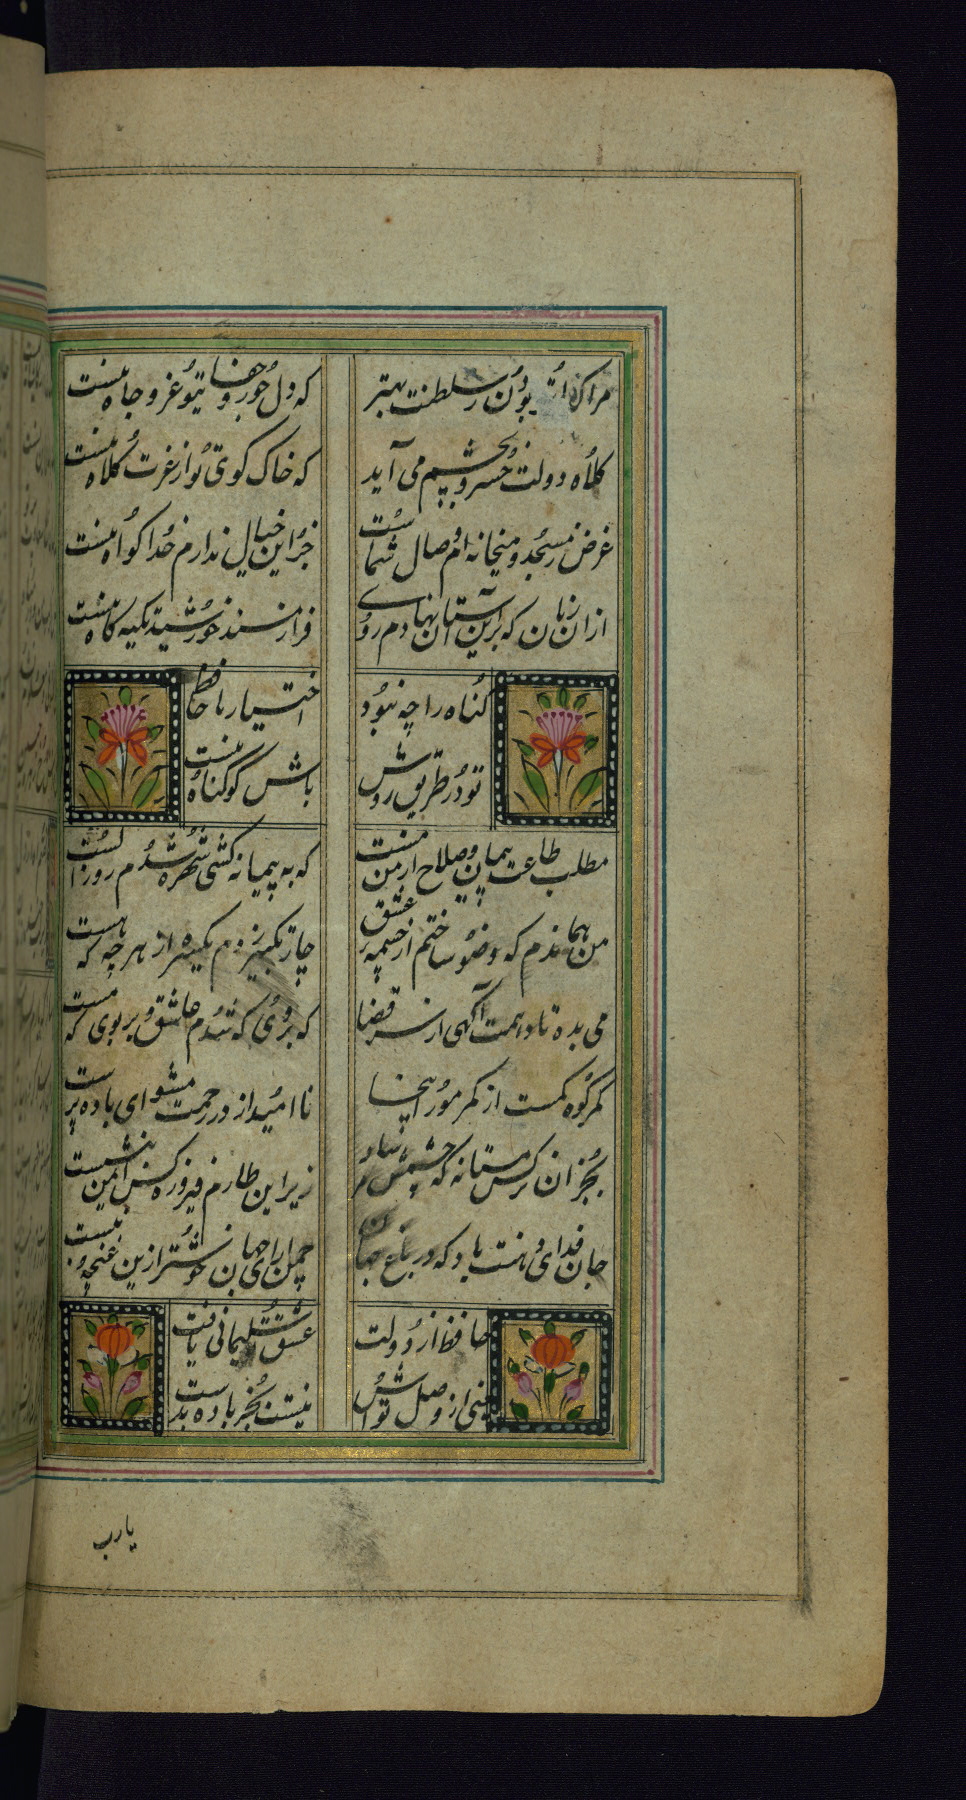 مرا کدا تو بودن ز سلطنت بهتر
که دل جور و جفا تیو عز و جاه نیست
کلاه دولت خسرو بچشم می آید
که خاک کوی تو از عزت کلاه نیست
غرض ز مسجد و میخانه ام وصال شماست
جز این خیال ندارم خدا کواه نیست
از ان زمان که براین آستان نهادم روی
فراز مسند خورشید تکیه کاه نیست
کناه را چه نبود
اختیار ما حافظ
تو در طریق روش
باش کو کناه نیست
مطلب طاعت و پیمان و صلاح از من مست
که به پیمانه کشی شهره شدم روز الست
من هماندم که وضو ساختم از چشمه عشق
چار تکبیر زدم یکسره از هر چه که هست
می بده تا دهمت آکهی از سر قضا
که بروی که شدم عاشق و بر بوی که مست
کمر کوه کمست از کمر مور اینجا
نا امید از در رحمت مشو ای باده پرست
بجز ان نرکس مستانه که چشمش مرساد
زیر این طارم فیروزه کسی امن ننشست
جان فدای دهنت باد که در باغ جهان
چمن ارای جهان خوشتر ازین غنچه نبست
حافظ از دولت
عشق تو سلیمانی یافت
یعنی از وصل تواش
نیست بجز باده بدست
یارب